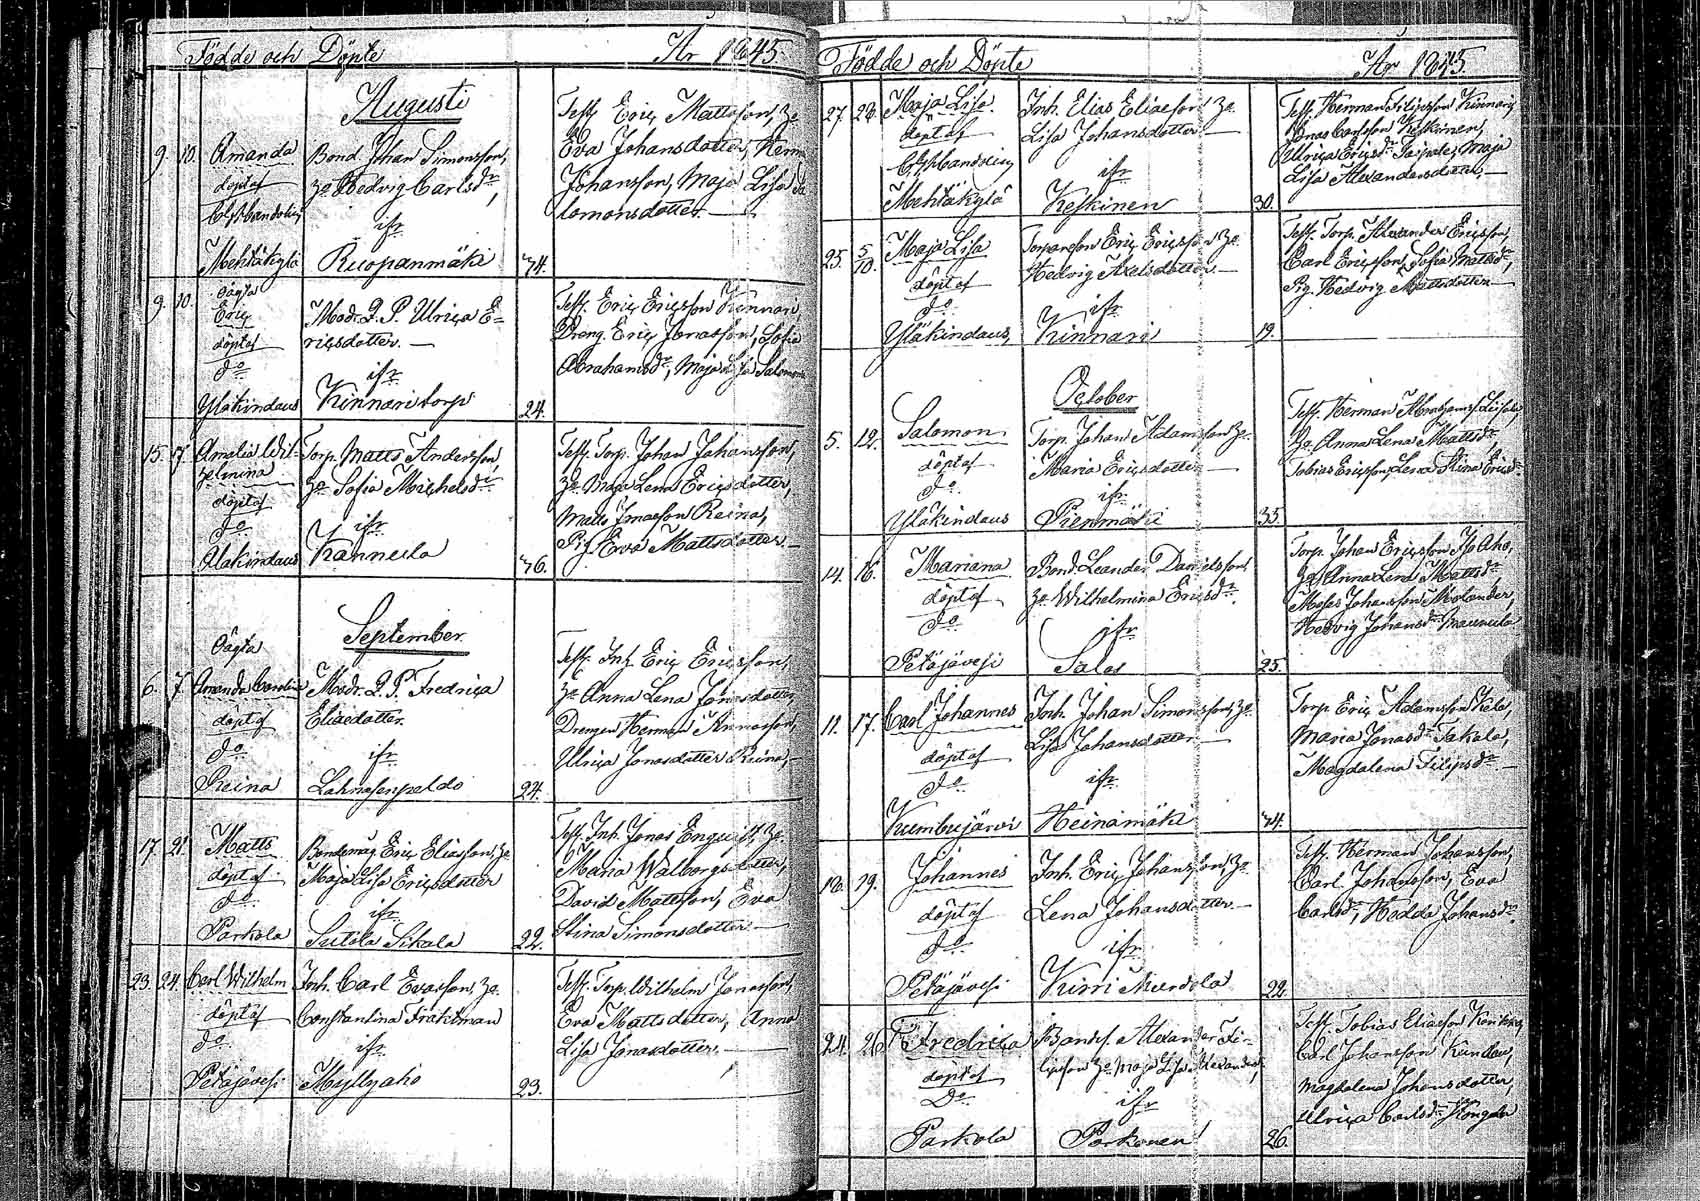 Födde och Döpte År 1845.
Augusti
9. 10. Amanda
döpt af
Mehtäkylä
Bond. Johan Simonsson,
h:o Hedvig Carlsd:r,
ifr
Ruopanmäki
34.
Test. Eric Mattsson, h:o
Eva Johansdotter, Herm
Johansson, Maja Lisa Sa
lomonsdotter. —
9. 10. Oägta
Eric
döpt af
d:o
Yläkindaus
Modr. Q. P. Ulrica E-
ricsdotter. —
ifr
Kinnari torp
24.
Test. Eric Ericsson Kinnari,
Dreng. Eric Jonasson, Sofia
Abrahamsd:r, Maja Lisa Salomons
15. 17. Amalia Wil-
helmina
döpt af
d:o
Yläkindaus
Torp. Matts Andersson,
h:o Sofia Michelsd:r
ifr
Kannula
36.
Test. Torp. Johan Johansson,
h:o Maja Lena Ericsdotter,
Matts Reina,
Pig. Eva Mattsdotter —
September
6. 7. Oägta
Amanda Carolina
döpt af
d:o
Reina
Modr. Q. P. Fredrica
Eliaedotter.
ifr
24.
Test. Inh. Eric Ericsson,
h:o Anna Lena Jonasdotter,
Drengen Herman
Ulrica Jonasdotter Reina, —
17. 21. Matts
döpt af
d:o
Parkola
Bondemåg. Eric Eliasson, h:o
Maja Lisa Ericsdotter
ifr
Sutela Sikala
22.
Test. Inh. Jonas Enquist, h:o
Maria Walborgsdotter,
David Mattsson, Eva
Stina Simonsdotter —
23. 24. Carl Wilhelm
döpt af
d:o
Petäjävesi
Inh. Carl Evasson, h:o
Constantina
ifr
Myllyaho
23.
Test. Torp. Wilhelm Jonasson,
Eva Mattsdotter, Anna
Lisa Jonasdotter, —
Födde och Döpte År 1845.
27. 28. Maja Lisa
döpt af
Mehtäkylä
Inh. Elias Eliaeson, h:o
Lisa Johansdotter —
ifr
Keskinen
30.
Test. Herman Filipsson Kinnari,
Jonas Carlsson Keskinen,
Ulrica Ericsd:r Taipale, Maja
Lisa Alexandersdotter, —
25. 5/10. Maja Lisa
döpt af
d:o
Yläkindaus
Torpareson Eric Ericsson, h:o
Hedvig Axelsdotter —
ifr
Kinnari
19.
Test. Torp. Alexander Ericsson,
Carl Ericsson, Sofia Mattsd:r,
Pig. Hedvig Mattsdotter —
October
5. 12. Salomon
döpt af
d:o
Yläkindaus
Torp. Johan Adamsson, h:o
Maria Ericsdotter —
ifr
Pienmäki
33.
Test. Herman
h:o Anna Lena Mattsd:r,
Tobias Ericsson, Lena Stina Ericsd:r
14. 16. Mariana
döpt af
d:o
Petäjävesi
Bond. Leander Danielsson,
h:o Wilhelmina Ericsd:r.
ifr
Sales
25.
Torp. Johan Ericsson Iso Aho,
h:o Anna Lena Mattsd:r
Moses Johansson Molander,
Hedvig Johansd:r
11. 17. Carl Johannes
döpt af
d:o
Kumbujärvi
Inh. Johan Simonsson, h:o
Lisa Johansdotter —
ifr
Heinämäki
34.
Torp. Eric Adamsson
Maria Jonasd:r Takala,
Magdalena Filipsd:r —
16. 19. Johannes
döpt af
d:o
Petäjävesi
Inh. Eric Johansson, h:o
Lena Johansdotter —
ifr
Kirri
22
Test. Herman Johansson,
Carl Johansson, Eva
Carlsd:r, Hedda Johansd:r
24. 26. Fredrica
döpt af
D:o
Parkola
Bonds. Alexander Fi-
lipsson h:o Maja Lisa Alexandersd.
ifr
Parkonen
26.
Test. Tobias Eliaeson
Carl Johansson
Magdalena Johansdotter,
Ulrica Carlsd:r